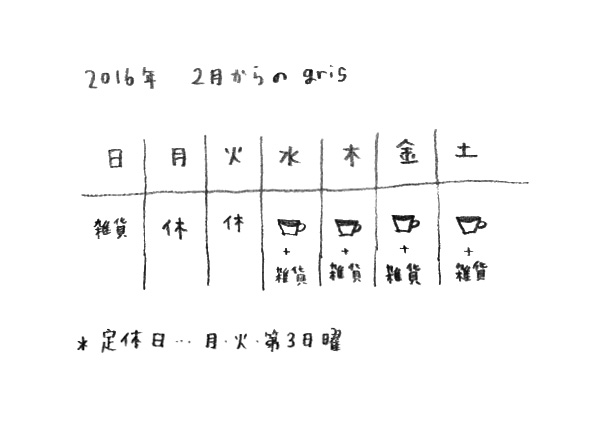 2016年 2月からの gris
日 月 火 水 木 金 土
雑貨 休 休
+ + + +
雑貨 雑貨 雑貨 雑貨
* 定休日… 月・火・第3日曜